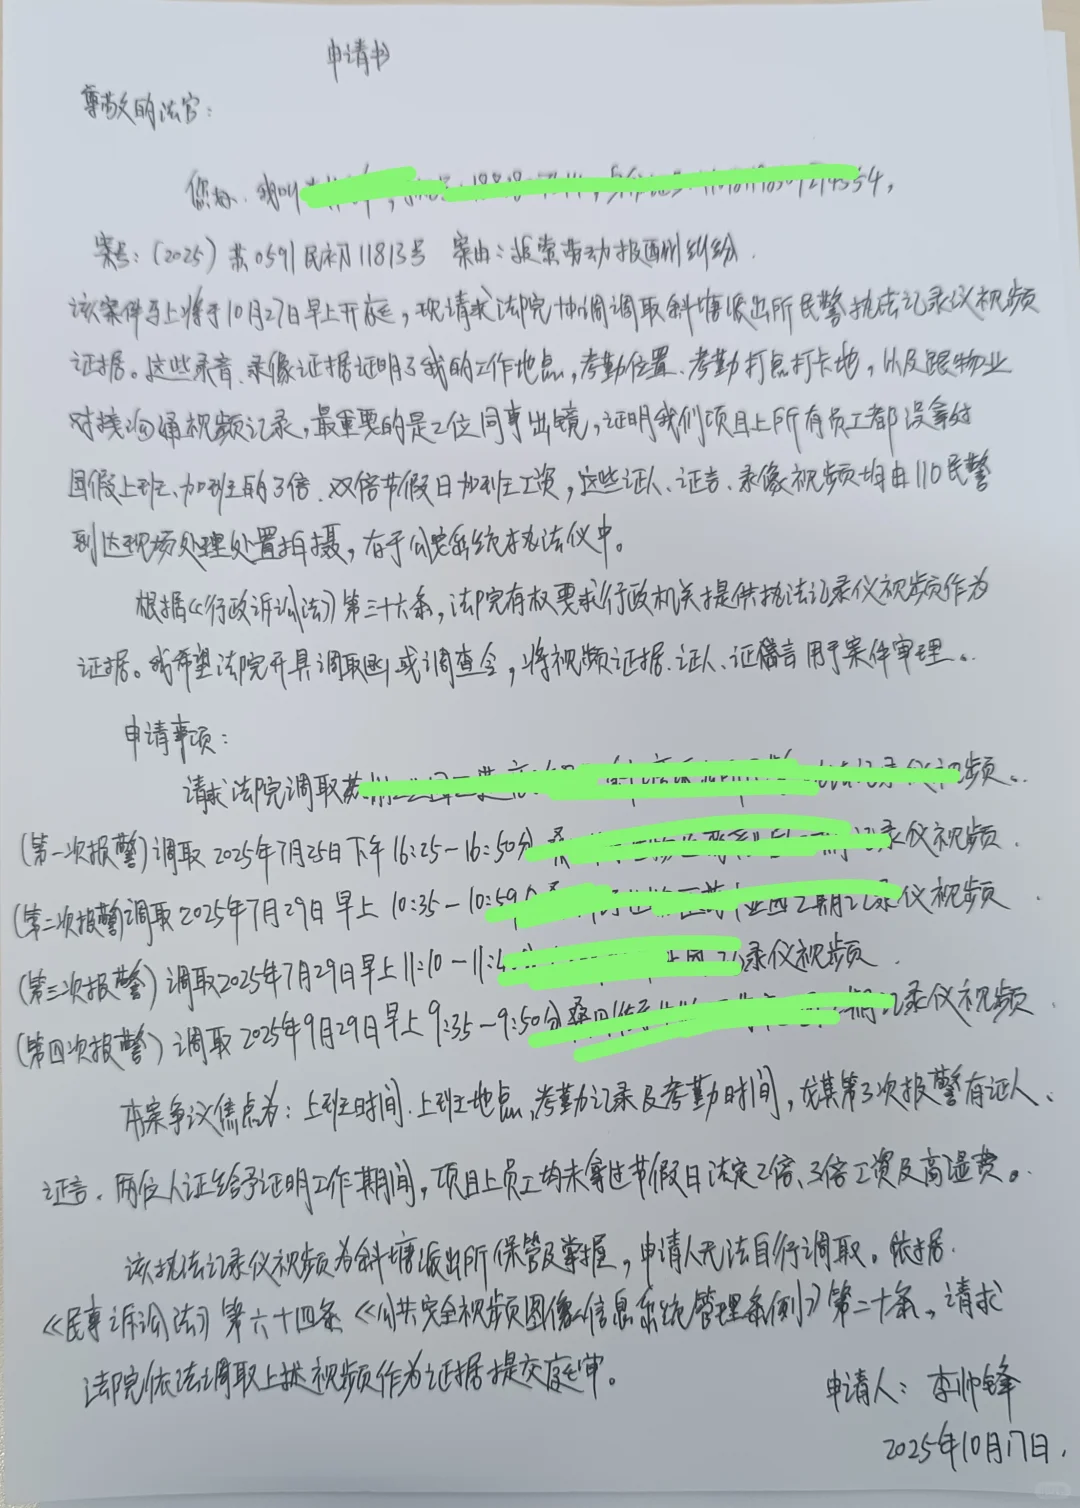 申请书
尊敬的法官：
您好，我叫
案号：(2025)苏0591民初11813号 案由：追索劳动报酬纠纷.
该案件马上将于10月27日早上开庭，现请求法院协调调取斜塘派出所民警执法记录仪视频
证据。这些录音、录像证据证明了我的工作地点，考勤位置、考勤打点打卡地，以及跟物业
对接沟通视频记录，最重要的是2位同事出镜，证明我们项目上所有员工都没拿过
国假上班、加班的3倍、双倍节假日加班工资，这些证人、证言、录像视频均由110民警
到达现场处理处置拍摄，存于公安系统执法仪中。
根据《行政诉讼法》第三十六条，法院有权要求行政机关提供执法记录仪视频作为
证据。我希望法院开具调取函，或调查令，将视频证据、证人、证言用于案件审理。
申请事项：
请求法院调取 记录仪视频。
(第一次报警)调取2025年7月25日下午16:25-16:50分 记录仪视频.
(第二次报警)调取2025年7月29日早上10:35-10:59 2期记录仪视频.
(第三次报警)调取2025年7月29日早上11:10-11: 记录仪视频.
(第四次报警)调取2025年9月29日早上9:35-9:50分 记录仪视频.
本案争议焦点为：上班时间、上班地点，考勤记录及考勤时间，尤其第3次报警有证人、
证言、两位人证给予证明工作期间，项目上员工均未拿过节假日法定2倍、3倍工资及高温费。
该执法记录仪视频为斜塘派出所保管及掌握，申请人无法自行调取。依据
《民事诉讼法》第六十四条《公共安全视频图像信息系统管理条例》第二十条，请求
法院依法调取上述视频作为证据提交庭审。
申请人：李帅锋
2025年10月17日.